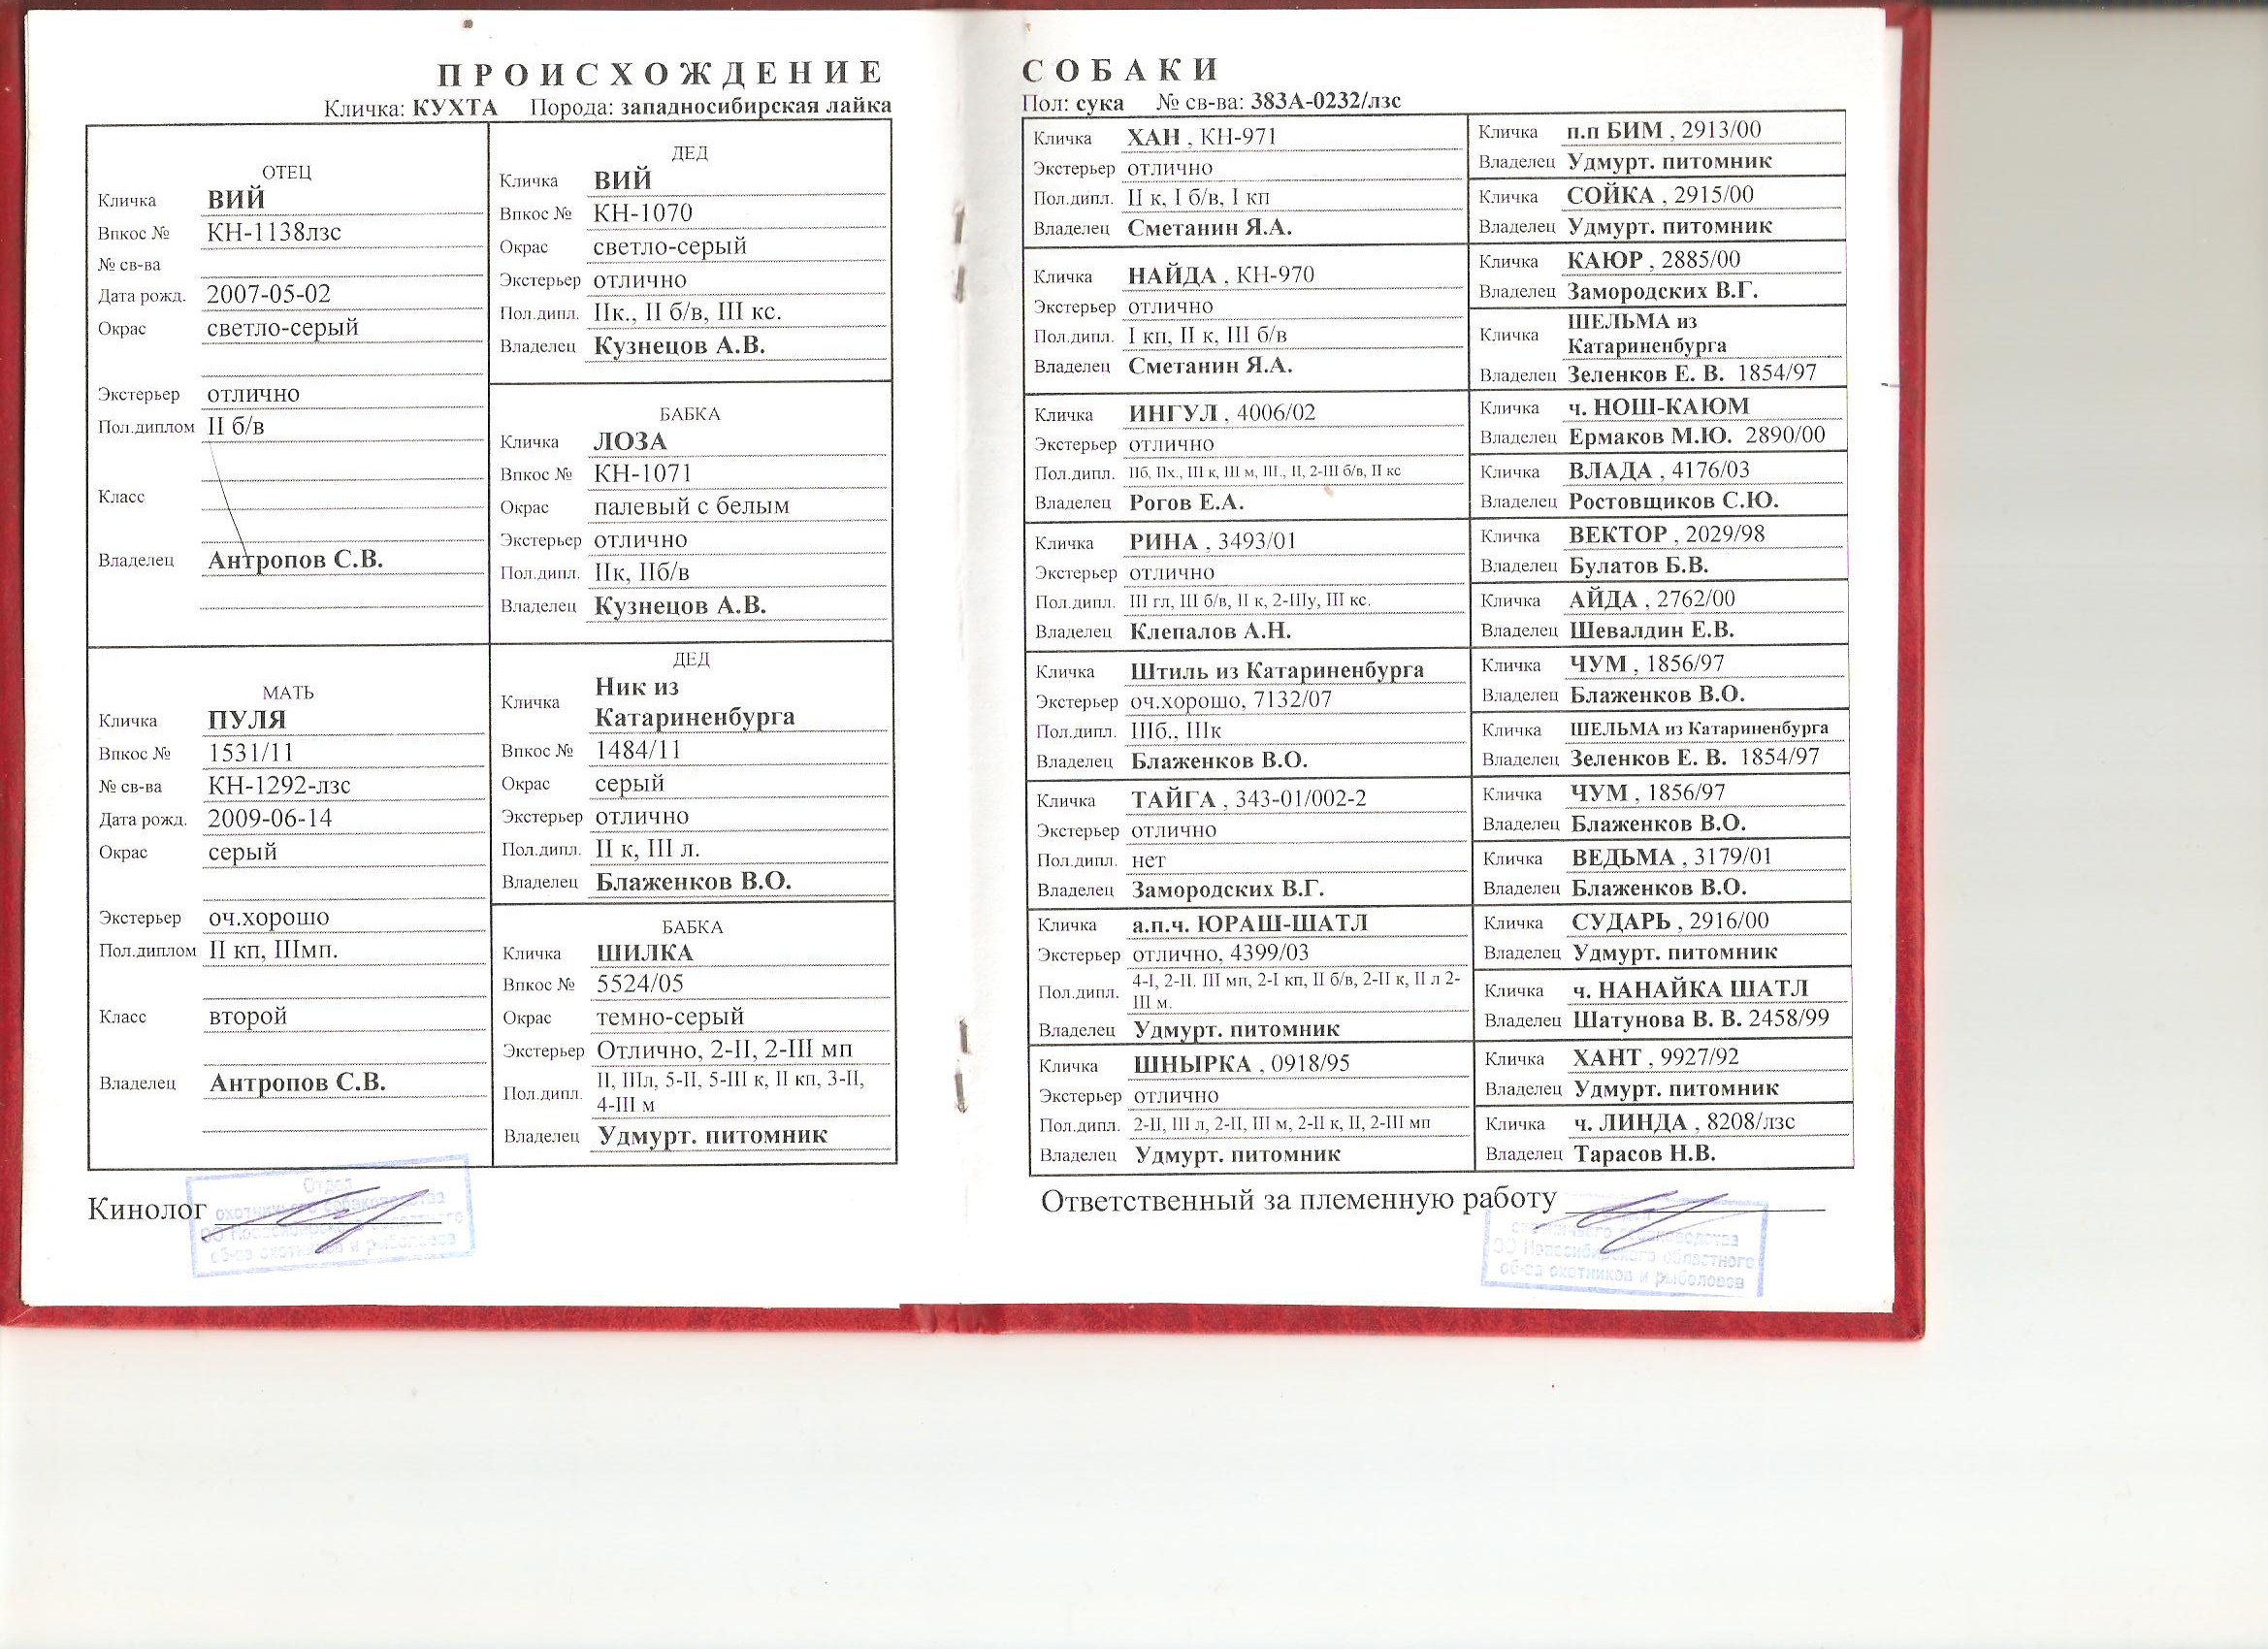 ПРОИСХОЖДЕНИЕ
Кличка: КУХТА Порода: западносибирская лайка
ОТЕЦ
Кличка ВИЙ
Впкос № КН-1138лзс
№ св-ва
Дата рожд. 2007-05-02
Окрас светло-серый
Экстерьер отлично
Пол.диплом II б/в
Класс
Владелец Антропов С.В.
МАТЬ
Кличка ПУЛЯ
Впкос № 1531/11
№ св-ва КН-1292-лзс
Дата рожд. 2009-06-14
Окрас серый
Экстерьер оч.хорошо
Пол.диплом II кп, IIIмп.
Класс второй
Владелец Антропов С.В.
ДЕД
Кличка ВИЙ
Впкос № КН-1070
Окрас светло-серый
Экстерьер отлично
Пол.дипл. IIк., II б/в, III кс.
Владелец Кузнецов А.В.
БАБКА
Кличка ЛОЗА
Впкос № КН-1071
Окрас палевый с белым
Экстерьер отлично
Пол.дипл. IIк, IIб/в
Владелец Кузнецов А.В.
ДЕД
Кличка Ник из
Катариненбурга
Впкос № 1484/11
Окрас серый
Экстерьер отлично
Пол.дипл. II к, III л.
Владелец Блаженков В.О.
БАБКА
Кличка ШИЛКА
Впкос № 5524/05
Окрас темно-серый
Экстерьер Отлично, 2-II, 2-III мп
Пол.дипл. II, IIIл, 5-II, 5-III к, II кп, 3-II,
4-III м
Владелец Удмурт. питомник
Кинолог
Отдел
охотничьего собаководства
ОО Новосибирского областного
об-ва охотников и рыболовов
СОБАКИ
Пол: сука № св-ва: 383А-0232/лзс
Кличка ХАН , КН-971
Экстерьер отлично
Пол.дипл. II к, I б/в, I кп
Владелец Сметанин Я.А.
Кличка НАЙДА , КН-970
Экстерьер отлично
Пол.дипл. I кп, II к, III б/в
Владелец Сметанин Я.А.
Кличка ИНГУЛ , 4006/02
Экстерьер отлично
Пол.дипл. IIб, IIх., III к, III м, III., II, 2-III б/в, II кс
Владелец Рогов Е.А.
Кличка РИНА , 3493/01
Экстерьер отлично
Пол.дипл. III гл, III б/в, II к, 2-IIIу, III кс.
Владелец Клепалов А.Н.
Кличка Штиль из Катариненбурга
Экстерьер оч.хорошо, 7132/07
Пол.дипл. IIIб., IIIк
Владелец Блаженков В.О.
Кличка ТАЙГА , 343-01/002-2
Экстерьер отлично
Пол.дипл. нет
Владелец Замородских В.Г.
Кличка а.п.ч. ЮРАШ-ШАТЛ
Экстерьер отлично, 4399/03
Пол.дипл. 4-I, 2-II. III мп, 2-I кп, II б/в, 2-II к, II л 2-
III м.
Владелец Удмурт. питомник
Кличка ШНЫРКА , 0918/95
Экстерьер отлично
Пол.дипл. 2-II, III л, 2-II, III м, 2-II к, II, 2-III мп
Владелец Удмурт. питомник
Кличка п.п БИМ , 2913/00
Владелец Удмурт. питомник
Кличка СОЙКА , 2915/00
Владелец Удмурт. питомник
Кличка КАЮР , 2885/00
Владелец Замородских В.Г.
Кличка ШЕЛЬМА из
Катариненбурга
Владелец Зеленков Е. В. 1854/97
Кличка ч. НОШ-КАЮМ
Владелец Ермаков М.Ю. 2890/00
Кличка ВЛАДА , 4176/03
Владелец Ростовщиков С.Ю.
Кличка ВЕКТОР , 2029/98
Владелец Булатов Б.В.
Кличка АЙДА , 2762/00
Владелец Шевалдин Е.В.
Кличка ЧУМ , 1856/97
Владелец Блаженков В.О.
Кличка ШЕЛЬМА из Катариненбурга
Владелец Зеленков Е. В. 1854/97
Кличка ЧУМ , 1856/97
Владелец Блаженков В.О.
Кличка ВЕДЬМА , 3179/01
Владелец Блаженков В.О.
Кличка СУДАРЬ , 2916/00
Владелец Удмурт. питомник
Кличка ч. НАНАЙКА ШАТЛ
Владелец Шатунова В. В. 2458/99
Кличка ХАНТ , 9927/92
Владелец Удмурт. питомник
Кличка ч. ЛИНДА , 8208/лзс
Владелец Тарасов Н.В.
Ответственный за племенную работу
охотничьего собаководства
ОО Новосибирского областного
об-ва охотников и рыболовов